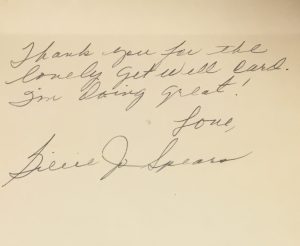 Thank you for the
lovely Get Well Card.
I'm doing great!
Love,
Billie Jo Spears